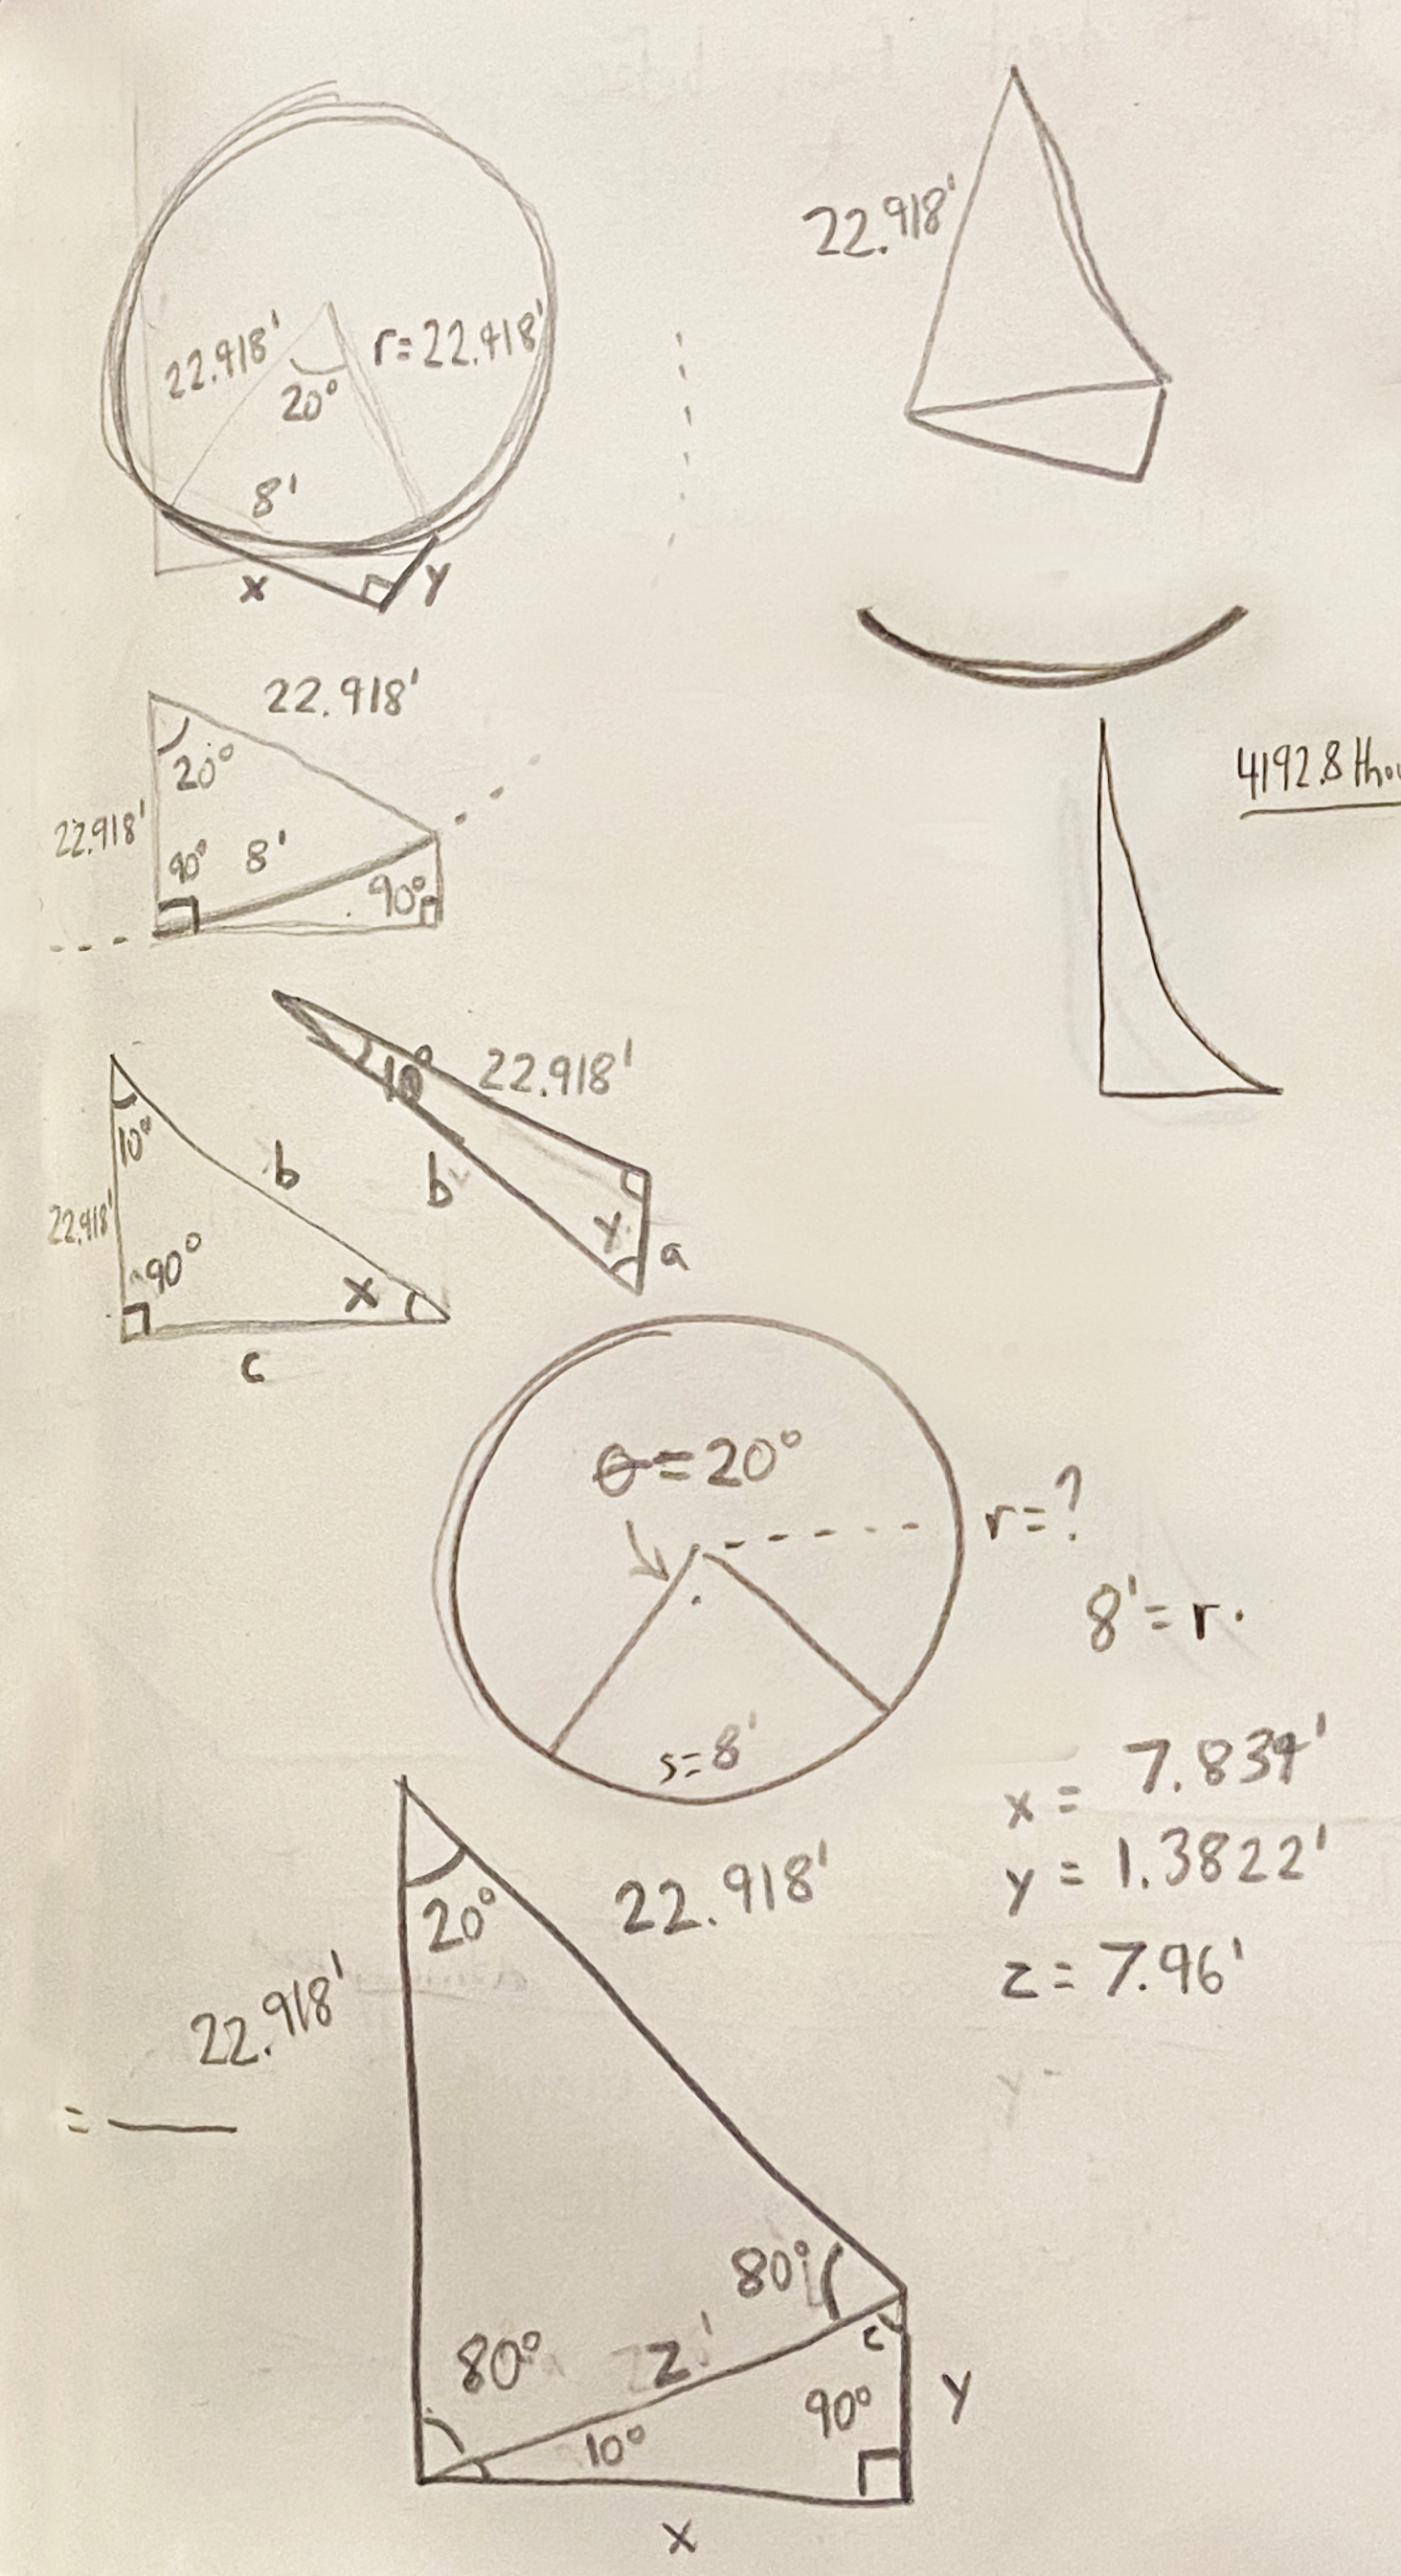 22.918'
22.918'
r=22.918'
20°
8'
x
y
22.918'
20°
22.918'
90°
8'
90°
4192.8
10°
22.918'
b
10°
b
22.918'
90°
x
y
a
c
θ=20°
r=?
8'=r.
s=8'
x = 7.839'
y = 1.3822'
z = 7.96'
20°
22.918'
22.918'
=
80°
80°
z'
c
10°
90°
y
x